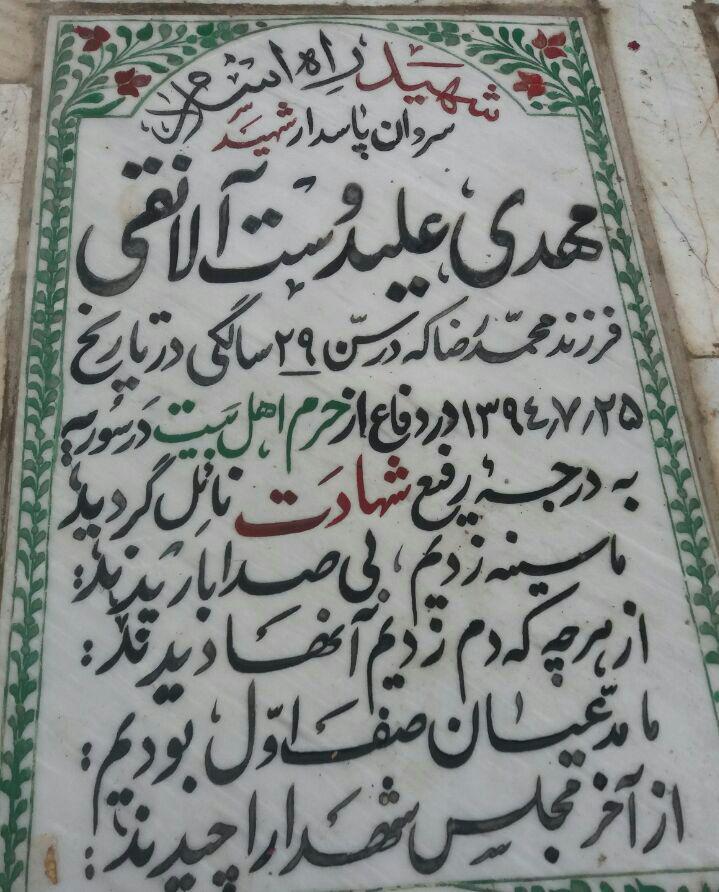 شهید راه اسلام
سروان پاسدار شهید
مهدی علیدوست آلانقی
فرزند محمدرضا که در سنّ ۲۹ سالگی در تاریخ
۱۳۹٤٫۷٫۲۵ در دفاع از حرم اهل بیت در سوریه
به درجهٔ رفیع شهادت نائل گردید
ما سینه زدیم، بی صدا باریدند:
از هر چه که دم زدیم آنها دیدند:
ما مدّعیان صف اوّل بودیم:
از آخر مجلس شهدا را چیدند: